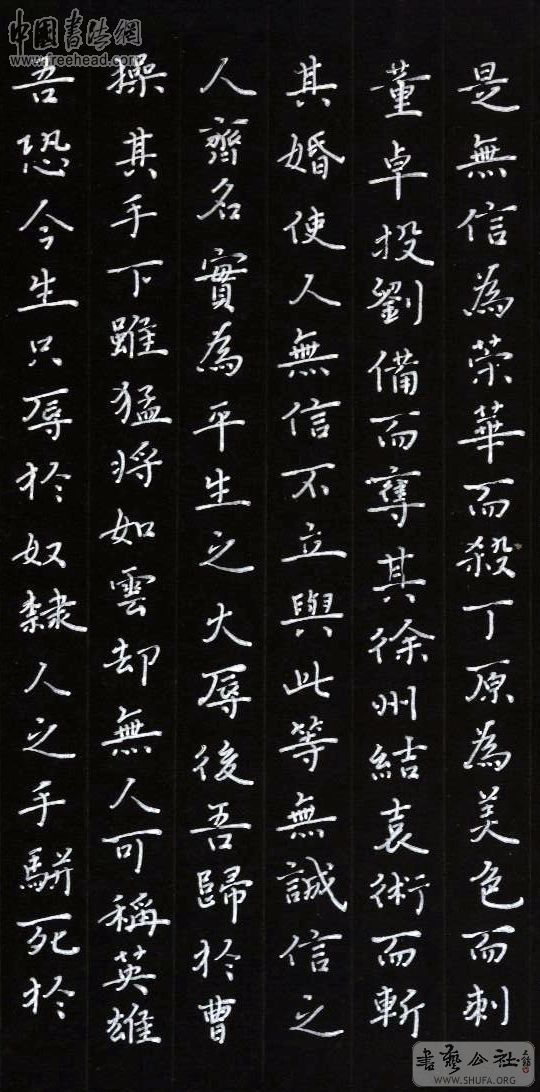 中國書法網
www.freehead.com
是無信為荣華而殺丁原為美色而刺
董卓投劉備而奪其徐州結袁術而斬
其婚使人無信不立與此等無誠信之
人齊名實為平生之大辱後吾歸於曹
操其手下雖猛将如雲却無人可稱英雄
吾恐今生只辱於奴隸人之手駢死於
書藝公社
WWW.SHUFA.ORG